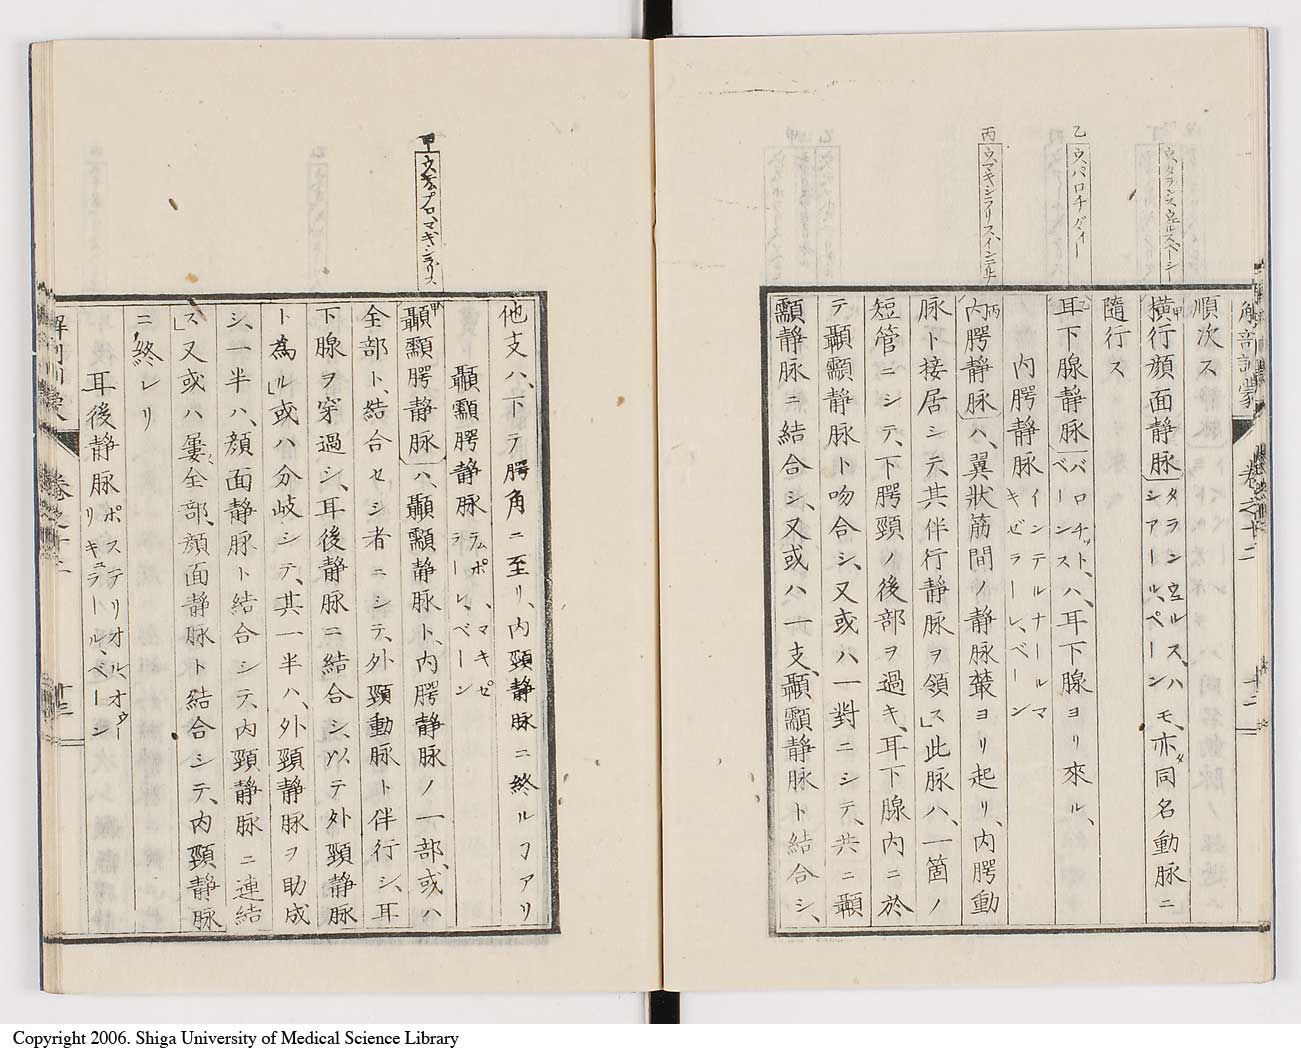 甲
ウ、タランス、ウェルスペーシー
乙
ウ、パロチダィー
丙
ウ、マキシラリスインニル
解剖訓蒙 卷之十二 十二
順次ス
橫行顔面静脉タランスウェルス、ハ
シアール、ベーン モ、亦タ同名動脉ニ
隨行ス
耳下腺静脉パロチット、
ベーンス ハ、耳下腺ヨリ來ル、
内腭静脉インテルナールマ
キゼラーレ、ベーン
内腭静脉ハ、翼狀筋間ノ静脉叢ヨリ起リ、内腭動
脉ト接居シテ、其伴行静脉ヲ領ス」此脉ハ、一箇ノ
短管ニシテ、下腭頸ノ後部ヲ過キ、耳下腺内ニ於
テ顳顬静脉ト吻合シ、又或ハ一對ニシテ、共ニ顳
顬静脉ニ結合シ、又或ハ一支、顳顬静脉ト結合シ、
甲
ウ、テムプロ、マキシラリス
他支ハ、下テ腭角ニ至リ、内頸静脉ニ終ルヿアリ
顳顬腭静脉テムポ、マキゼ
ラーレ、ベーン
顳顬腭静脉ハ、顳顬静脉ト、内腭静脉ノ一部、或ハ
全部ト、結合セシ者ニシテ、外頸動脉ト伴行シ、耳
下腺ヲ穿過シ、耳後静脉ニ結合シ、以テ外頸静脉
ト為ル」或ハ分岐シテ、其一半ハ、外頸静脉ヲ助成
シ、一半ハ、顔面静脉ト結合シテ、内頸静脉ニ連結
ス」又或ハ屢全部、顔面静脉ト結合シテ、内頸静脉
ニ終レリ
耳後静脉ポステリオル、オウ
リキュラール、ベーン
卷之十二 十三
Copyright 2006. Shiga University of Medical Science Library